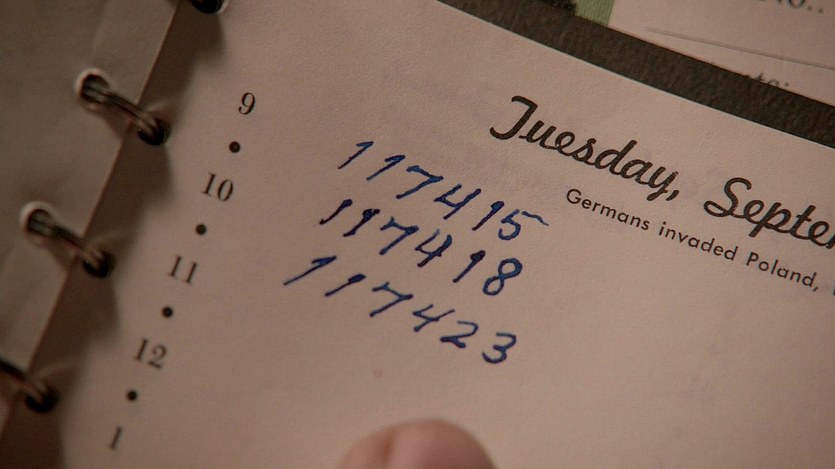 Tuesday,
Germans invaded Poland,
9
10
11
12
1
117415
117418
117423